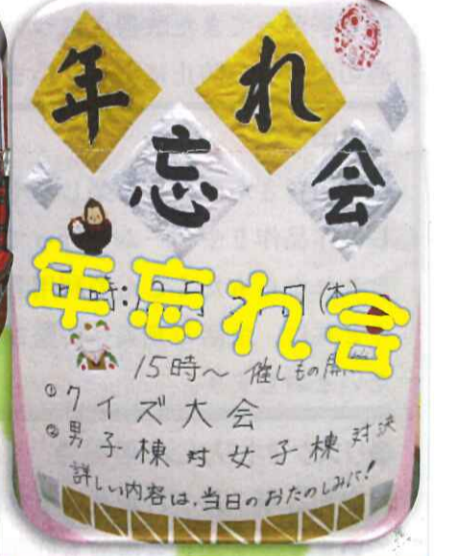 年忘れ会
年忘れ会
時:
(木)
15時～ 催しもの開
①クイズ大会
②男子棟対女子棟対決
詳しい内容は、当日のおたのしみに!